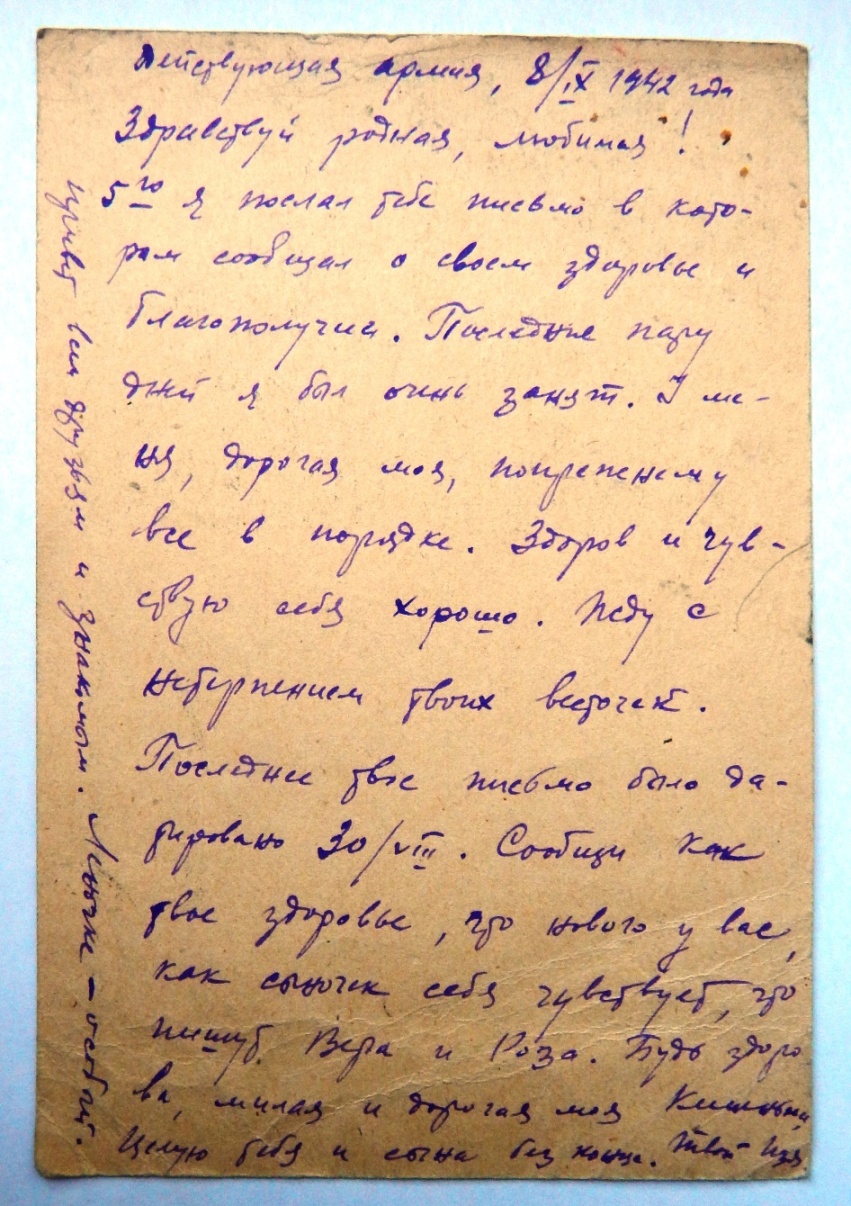 Действующая армия, 8/IX 1942 года
Здравствуй родная, любимая!
5го я послал тебе письмо в кото-
ром сообщал о своем здоровье и
благополучии. Последние пару
дней я был очень занят. У ме-
ня, дорогая моя, попрежнему
все в порядке. Здоров и чув-
ствую себя хорошо. Жду с
нетерпением твоих весточек.
Последнее твое письмо было да-
тировано 30/VIII. Сообщи как
твое здоровье, что нового у вас,
как сыночек себя чувствует, что
пишут Вера и Роза. Будь здоро
ва, милая и дорогая моя
Целую тебя и сына без конца. Твой Изя
Привет всем друзьям и знакомым. Леночке – особый.